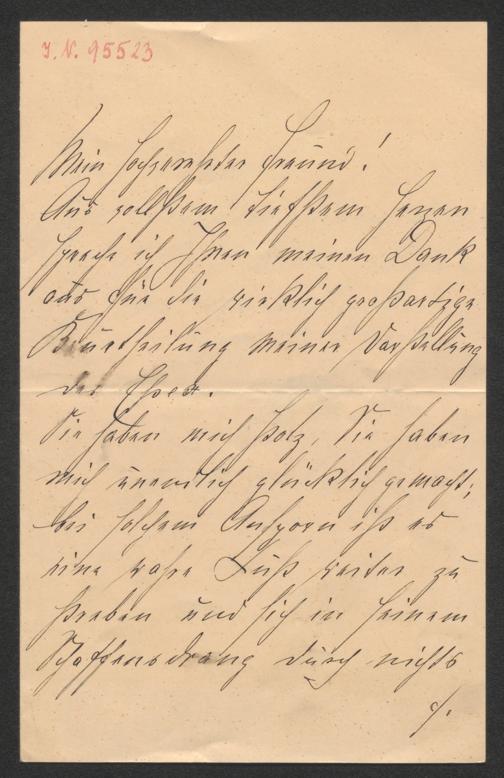 J.N. 95523
Mein hochverehrter Freund!
Aus vollstem tiefstem Herzen
spreche ich Ihnen meinen Dank
aus für die wirklich großartige
Beurtheilung meiner Darstellung
der
Sie haben mich stolz, Sie haben
mich unendlich glücklich gemacht;
bei solchem Ansporn ist es
eine wahre Lust weiter zu
streben und sich in seinem
Schaffensdrang durch nichts